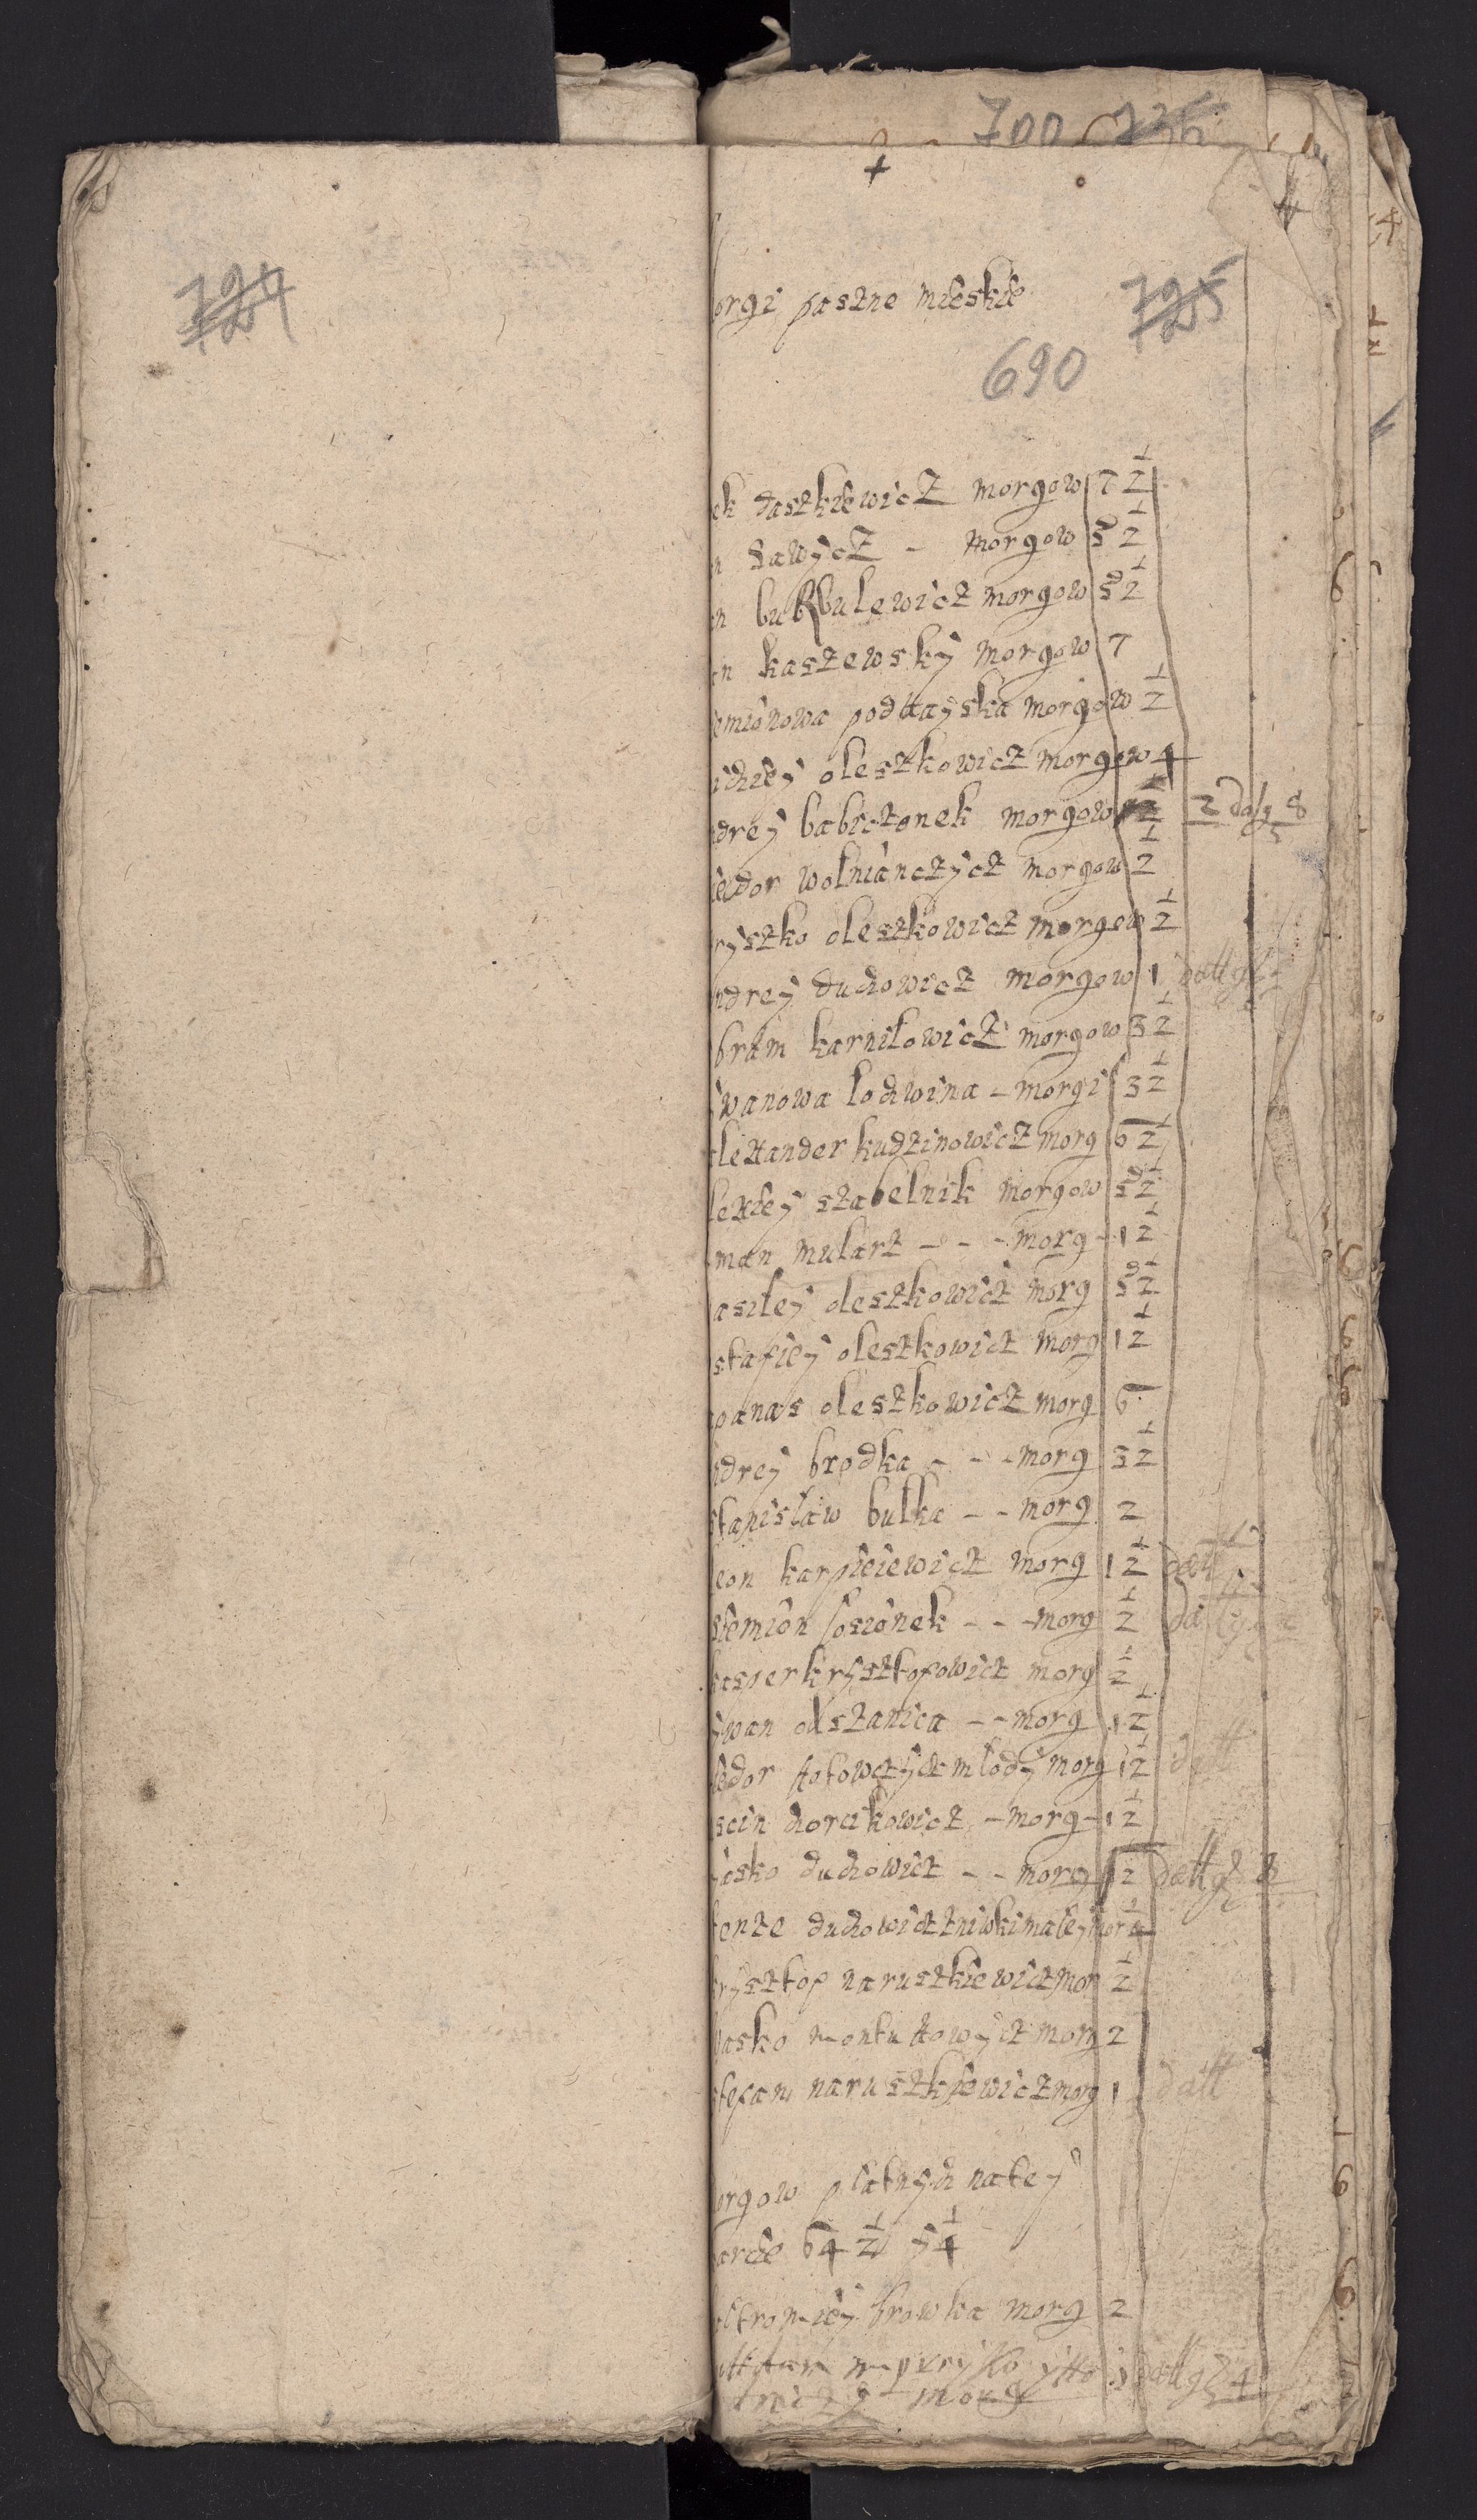 700 726
724
orgi pastne mieskie
725
690
ek dasztkiewicz morgow 7 1/2
n sawycz - morgow 5 1/2
n bukbulewicz morgow 5 1/2
n kaszewsky morgow 7
emionowa podlayska morgow 1/2
ichiey oleszkowicz morgow 4
drey babiczonek morgow 1/2 2 8
iedor wolnianczycz morgow 1/2
ryszko oleszkowicz morgow 1/2
ndrey duchowicz morgow 1 datt
bram karnilowicz morgow 3 1/2
iwanowa lochwina - morgi 3 1/2
lexander kudzinowicz morg 6 1/2
lexiey szabelnik morgow 5 1/2
man mularz - - - morg - 1 1/2
asiley oleszkowicz morg 5 1/2
stafiey oleszkowicz morg 1 1/2
panas oleszkowicz morg 6
ndrey brodka - - - morg 3 1/2
stanislaw bulka - - morg 2
leon karpieiewicz morg 1 1/2 datt
siemion sosionek - - - morg 1/2
kasper krysztofowicz morg 1/2
iwan olszanica - - morg 1 1/2
iedor młody morg 1 1/2 datt
scin chorcikowicz - morg - 1 1/2
iasko duchowicz - - morg 2 datt
duchowicz
krysztof naruszkiewicz mor 1/2
morg 2
stefan naruszkiewicz morg 1 datt
orgow platnych natey
arcie 64 1/2 y 1/4
browka morg 2
datt 4
morg